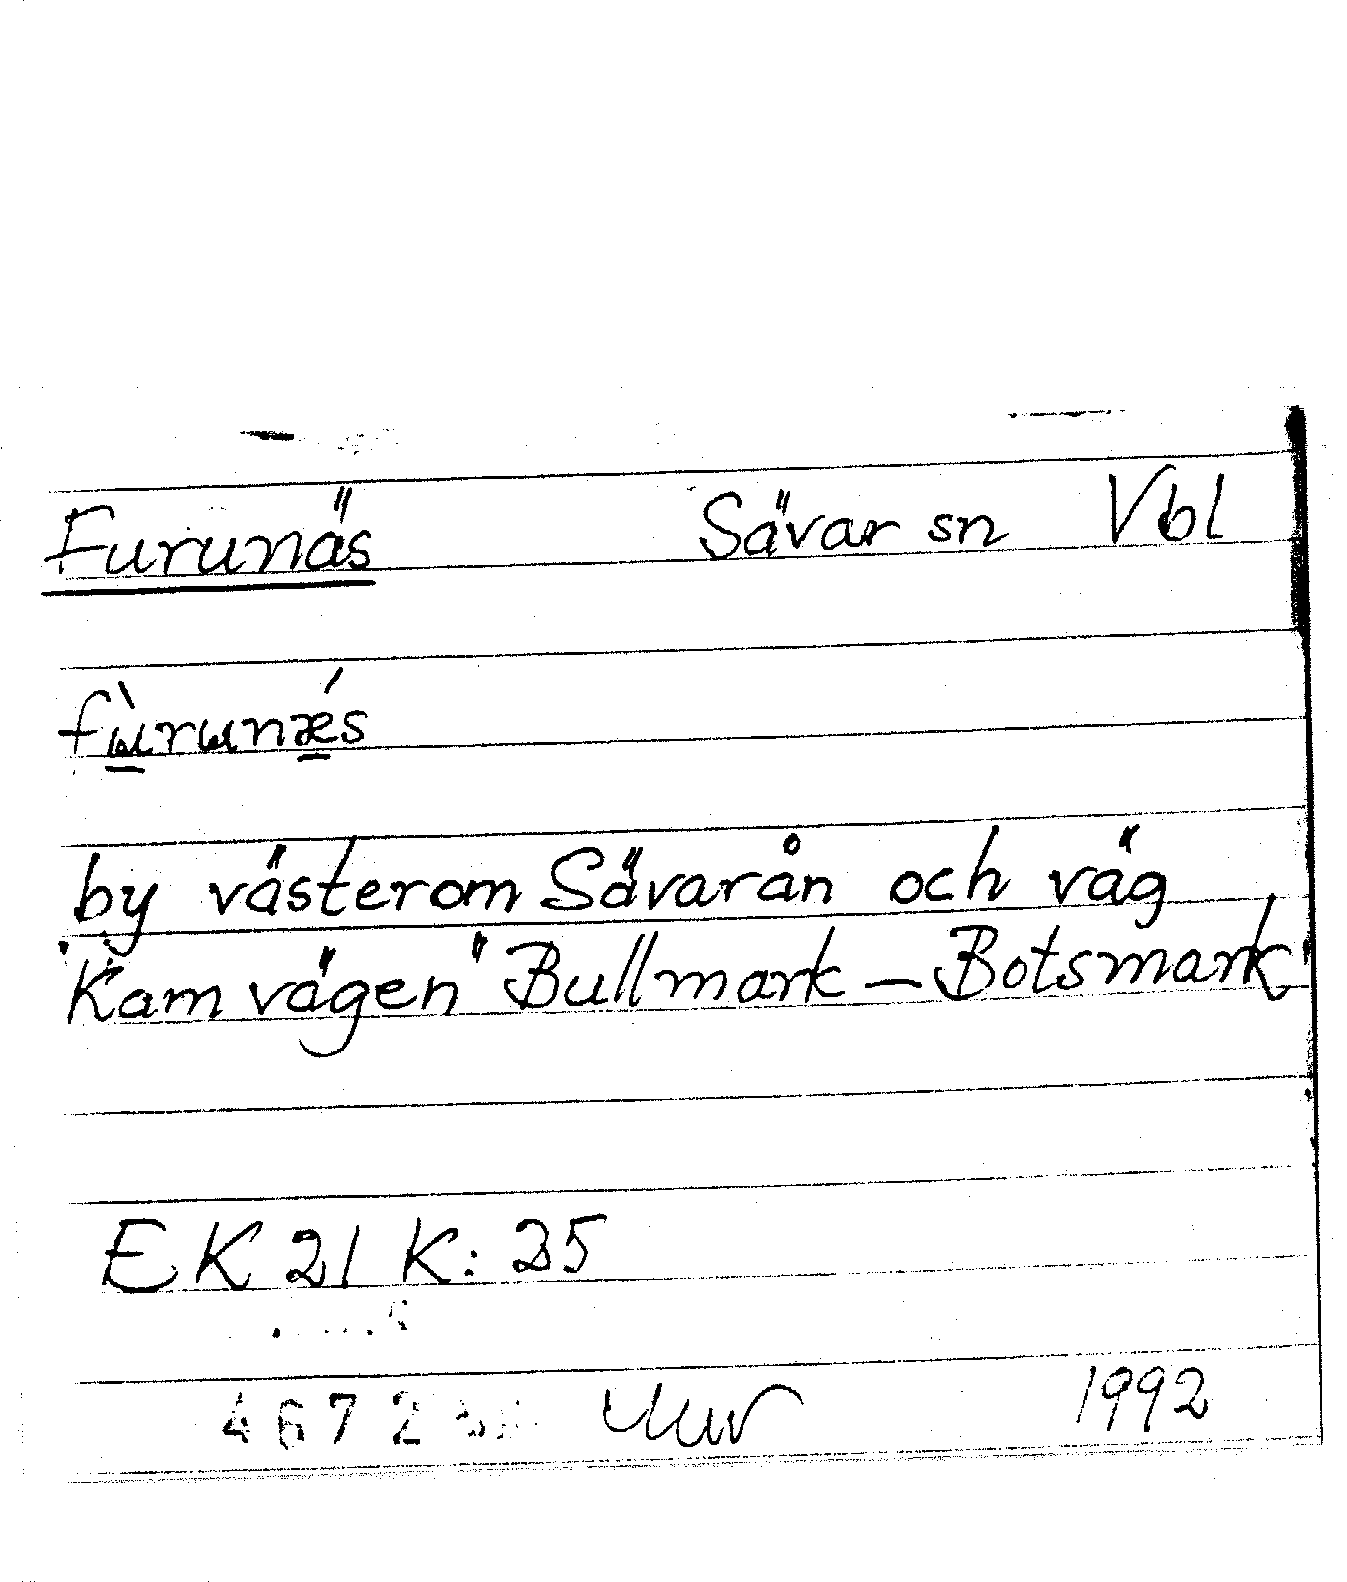 Furunäs Sävar sn Vbl
fùrunǽs
by västerom Sävarån och väg
"Kamvägen" Bullmark – Botsmark
EK 21 K: 35
4672 1992